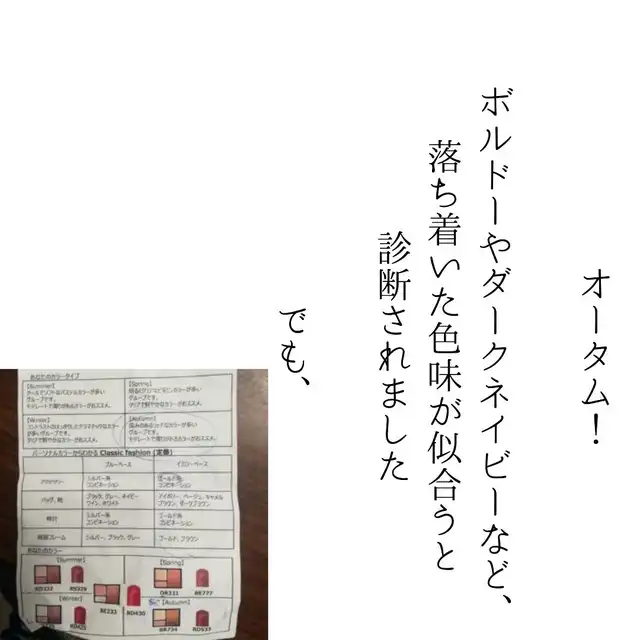 オータム！
ボルドーやダークネイビーなど、
落ち着いた色味が似合うと
診断されました
でも、
あなたのカラータイプ
【Summer】
【Spring】
グループです。
グループです。
【Winter】
【Autumn】
パーソナルカラーからわかる Classic fashion (定番)
ブルーベース
イエローベース
アクセサリー
シルバー系
コンビネーション
ゴールド系
コンビネーション
バッグ、靴
ブラック、グレー、ネイビー
ワイン、ホワイト
アイボリー、ベージュ、キャメル
ブラウン、ダークブラウン
時計
シルバー系
コンビネーション
ゴールド系
コンビネーション
眼鏡フレーム
シルバー、ブラック、グレー
ゴールド、ブラウン
あなたのカラー
【Summer】
【Spring】
RD333
RS329
OR331
BE777
BE233
RD430
【Winter】
【Autumn】
RD425
BR734
RD533